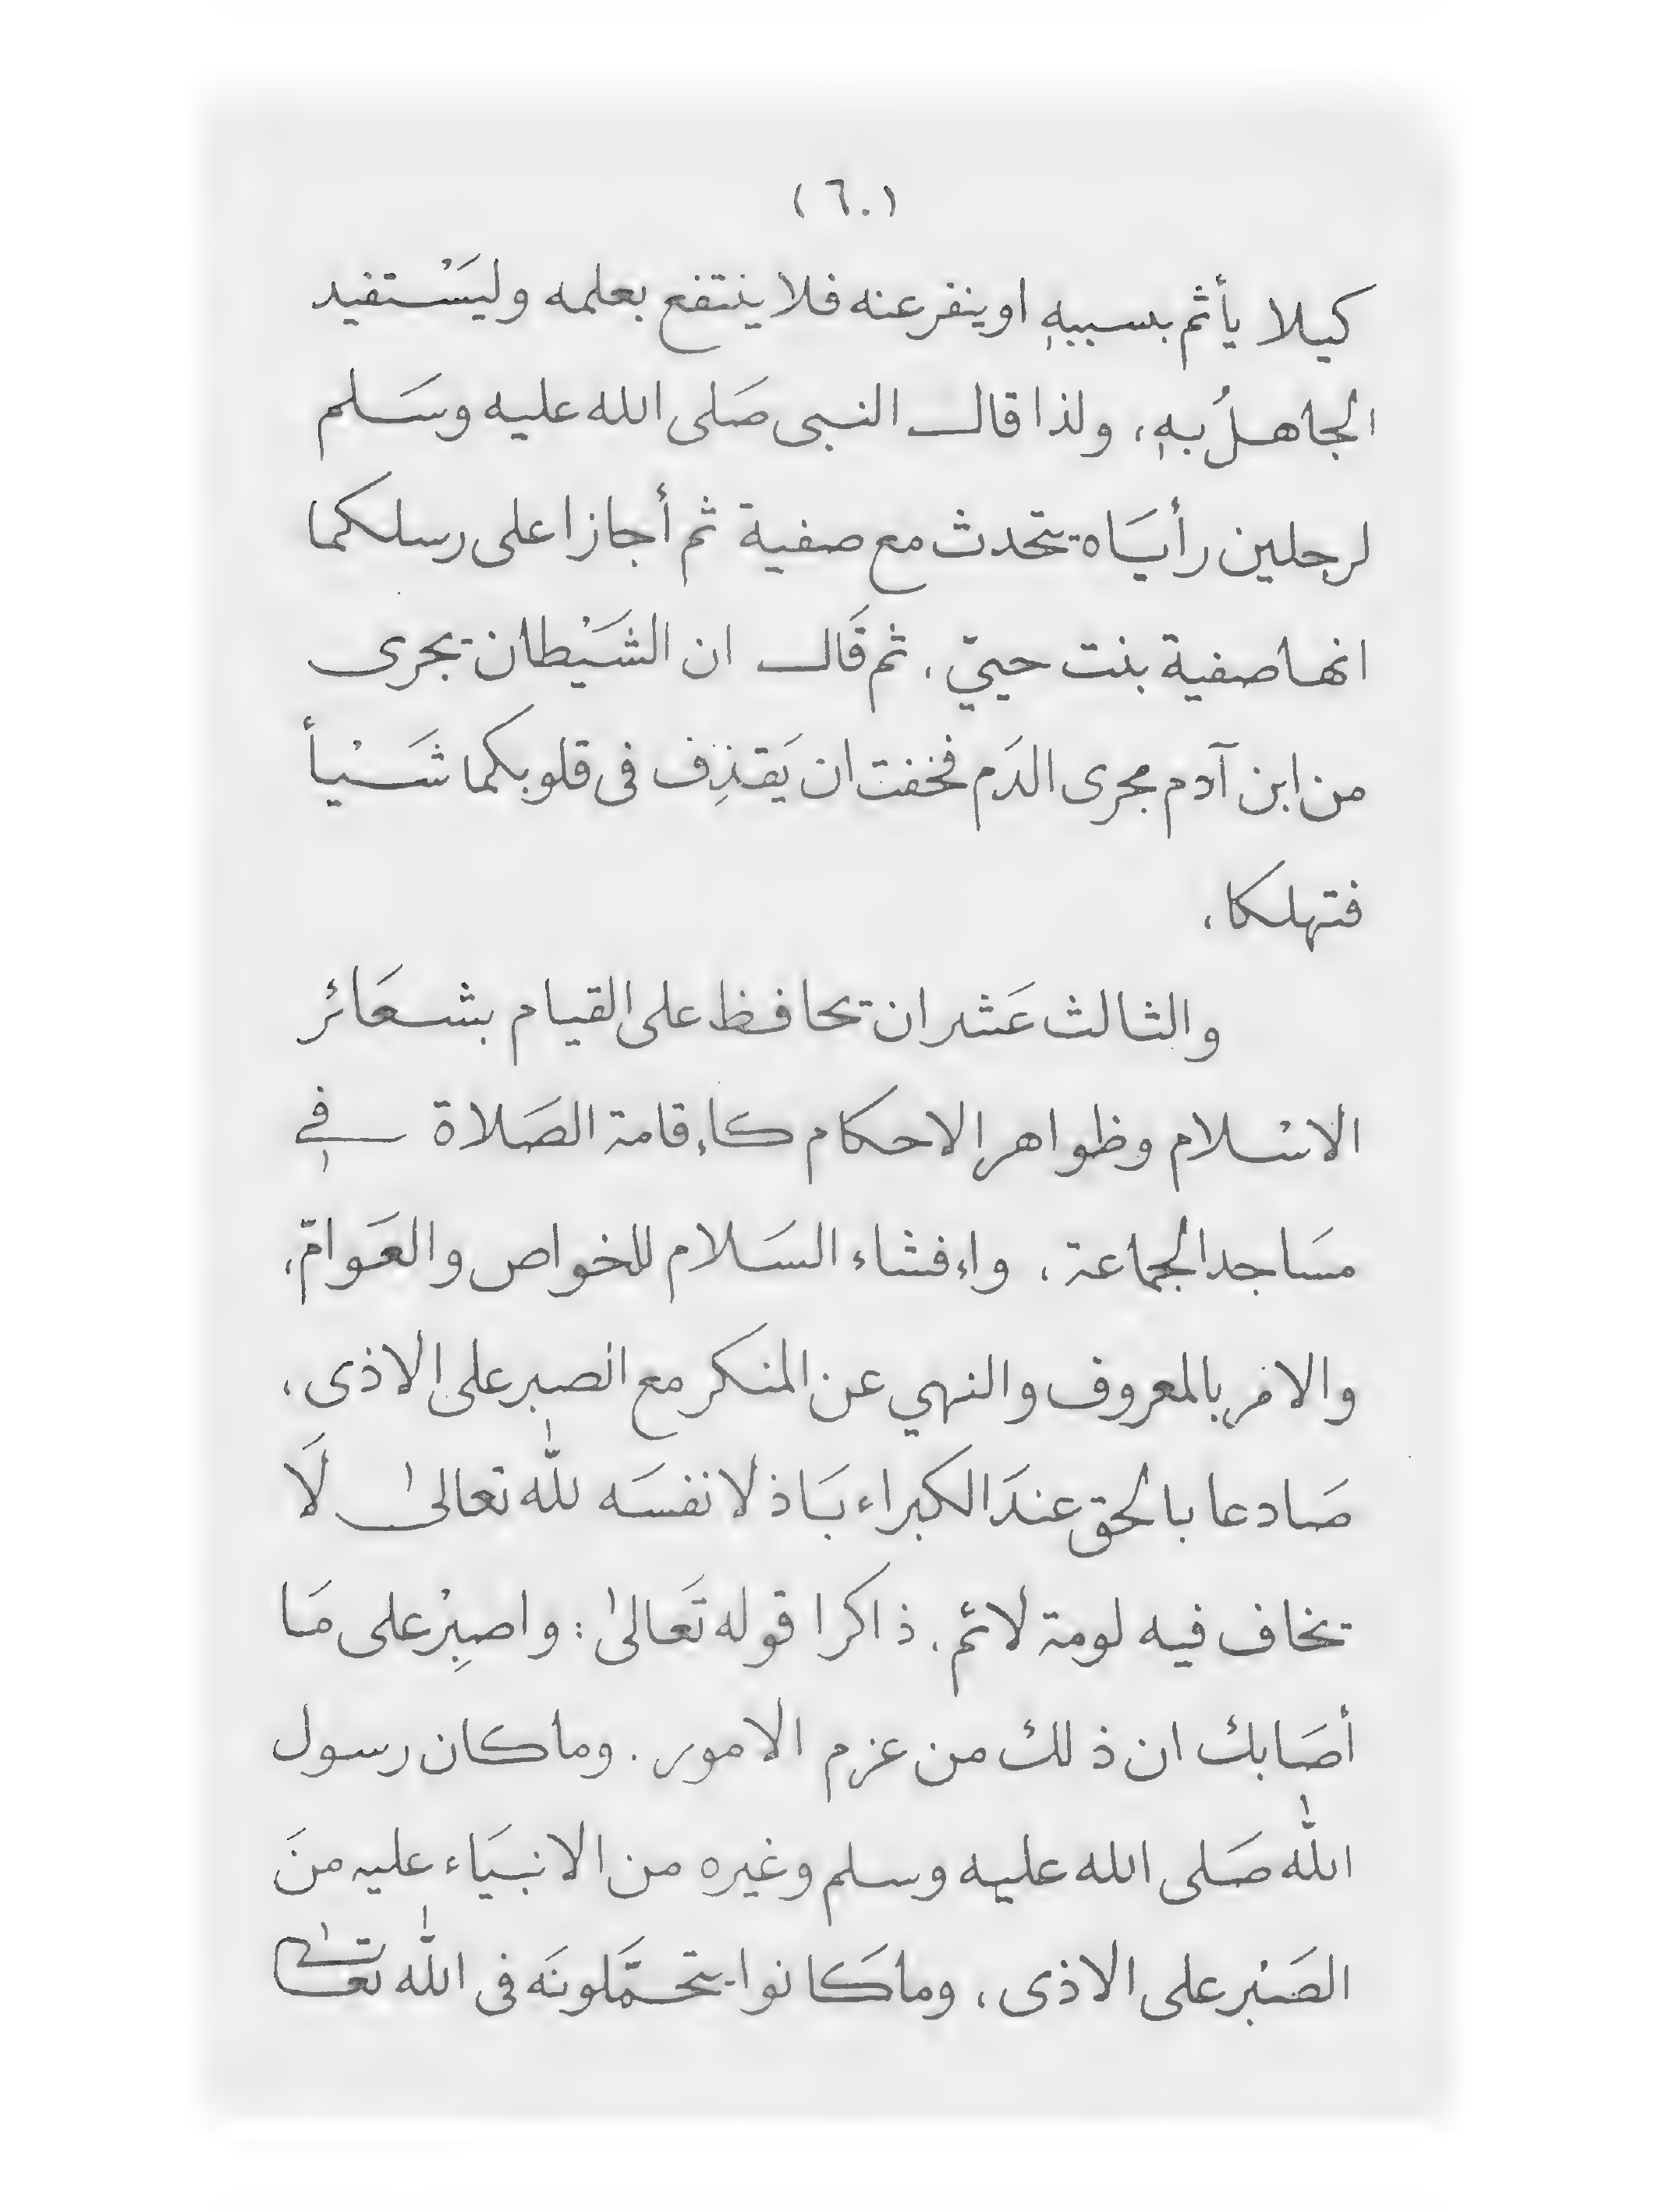 (٦٠)
كيلا يأثم بسببهٖ اوينفرعنه فلا ينتفع بعلمه وليَسْتفيد
الجاهلُ بهٖ، ولذا قال النبى صَلى الله عليه وسَلم
لرجلين رأيَاه يتحدث مع صفية ثم أجازا على رسلكما
انها صفية بنت حييّ، ثم قَال ان الشَيْطان يجرى
من ابن آدم مجرى الدَم فخفت ان يَقذِف فى قلوبكما شَيْأ
فتهلكا،
والثالث عَشر ان يحافظ على القيام بشعَائر
الاسْلام وظواهر الاحكام كاءقامة الصَلاة فى
مسَاجد الجماعة، واءفشاء السَلام للخواص والعَوامّ،
والامر بالمعروف والنهي عن المنكر مع الصبر على الاذى،
صَادعا بالحق عندَ الكبراء بَاذلا نفسَه لله تعالىٰ لَا
يخاف فيه لومة لائم، ذاكرا قوله تَعالىٰ: واصبِرْ على مَا
أصَابك ان ذلك من عزم الامور. وماكان رسول
الله صَلى الله عليه وسلم وغيره من الانبيَاء عليه منَ
الصَبْر على الاذى، وماكَانوا يتحمَّلونَه فى الله تعالىٰ